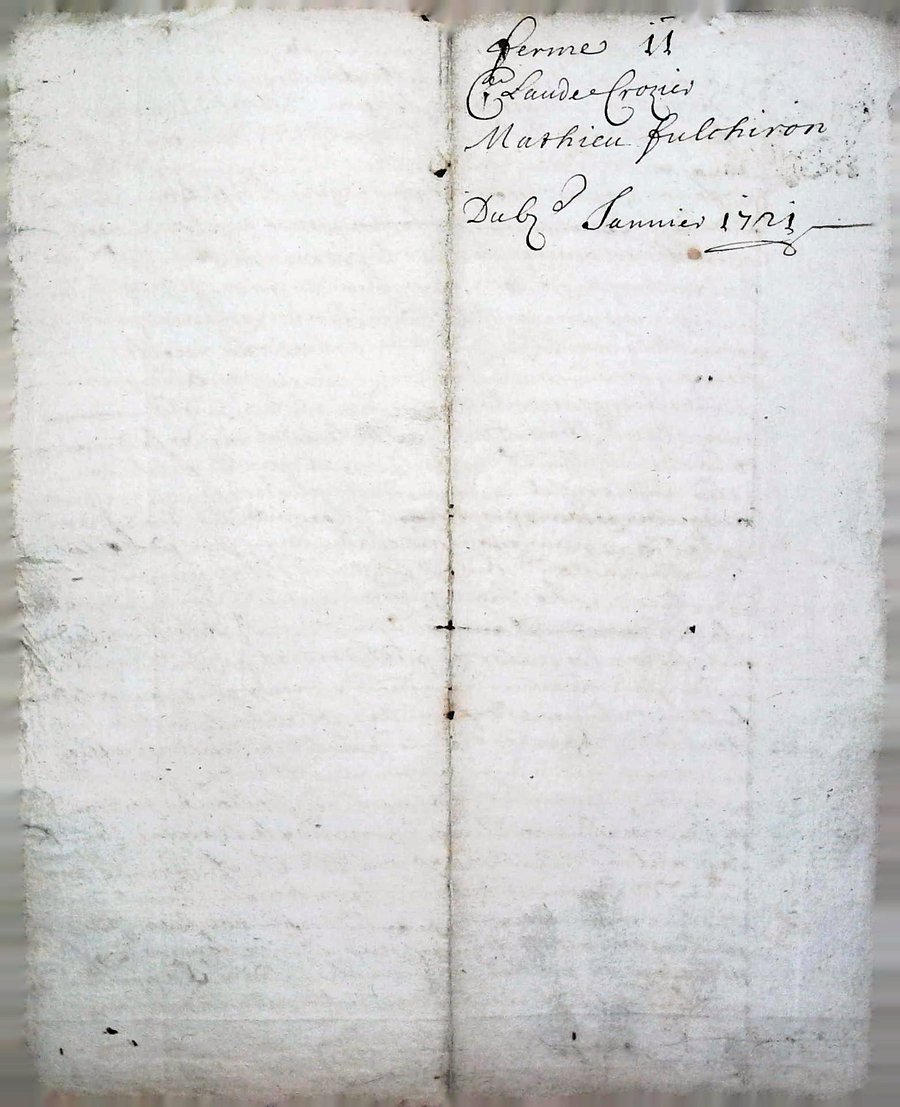 ferme 11
Claude Crozier
Mathieu fulchiron
Du Janvier 1721